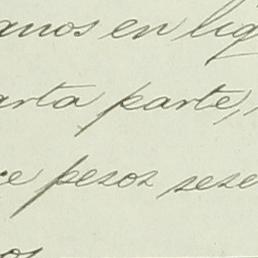 anos en lig
arta parte,
ce pesos sese
os